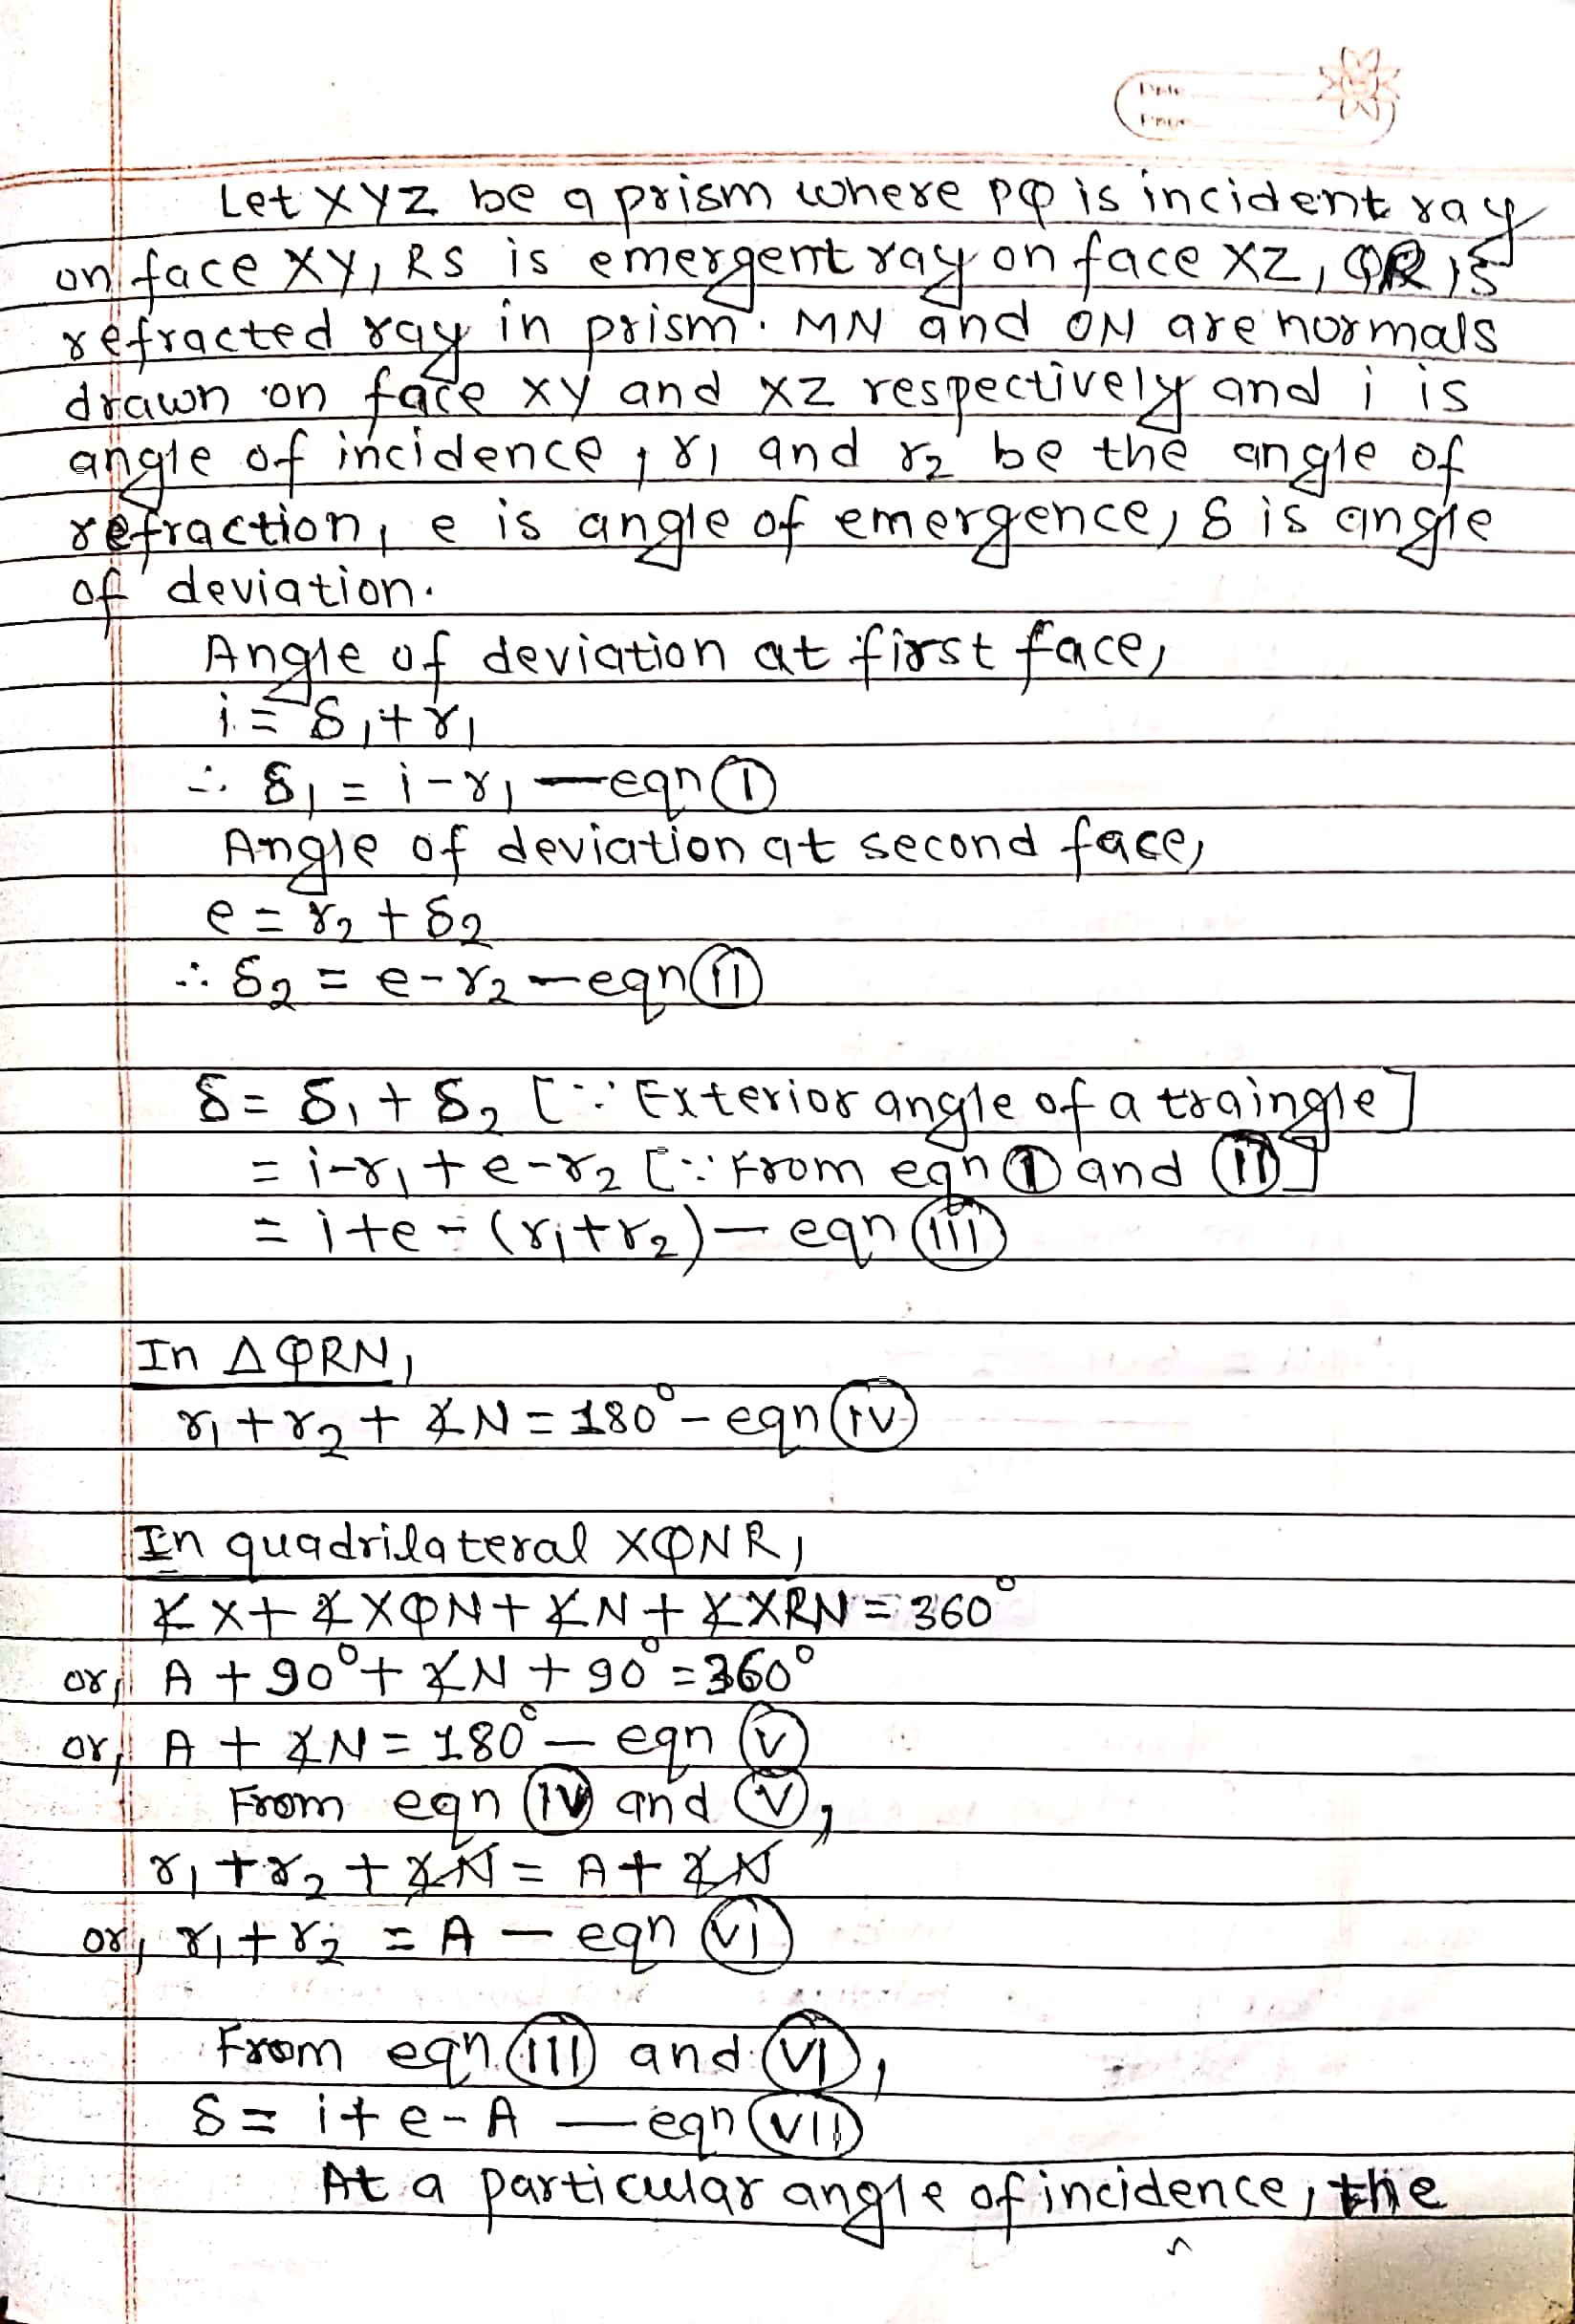 Date
Page
Let XYZ be a prism where PQ is incident ray
on face XY, RS is emergent ray on face XZ, QR is
refracted ray in prism. MN and ON are normals
drawn on face XY and XZ respectively and i is
angle of incidence, r₁ and r₂ be the angle of
refraction, e is angle of emergence, δ is angle
of deviation.
Angle of deviation at first face,
i = δ₁ + r₁
∴ δ₁ = i - r₁ — eqn (I)
Angle of deviation at second face,
e = r₂ + δ₂
∴ δ₂ = e - r₂ — eqn (II)
δ = δ₁ + δ₂ [∵ Exterior angle of a traingle]
= i - r₁ + e - r₂ [∵ From eqn (I) and (II)]
= i + e - (r₁ + r₂) — eqn (III)
In △QRN,
r₁ + r₂ + ∡N = 180° - eqn (IV)
In quadrilateral XQNR,
∡X + ∡XQN + ∡N + ∡XRN = 360°
or, A + 90° + ∡N + 90° = 360°
or, A + ∡N = 180° — eqn (V)
From eqn (IV) and (V),
r₁ + r₂ + ∡N = A + ∡N
or, r₁ + r₂ = A — eqn (VI)
From eqn (III) and (VI),
δ = i + e - A — eqn (VII)
At a particular angle of incidence, the